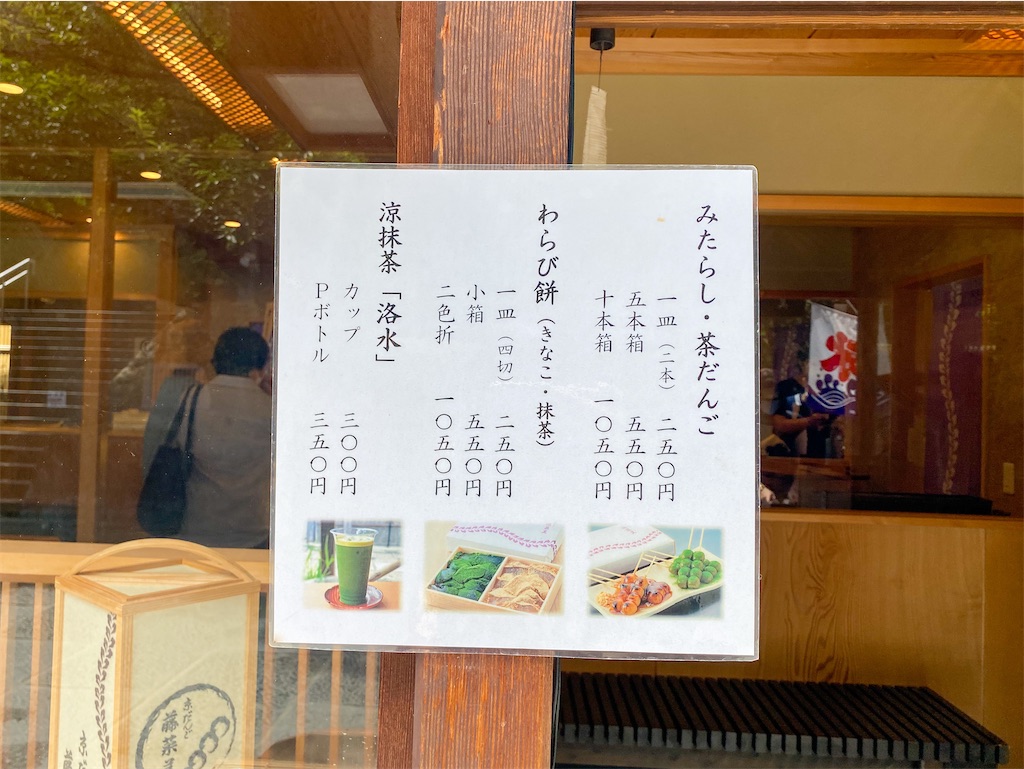 みたらし・茶だんご
一皿（二本） 二五〇円
五本箱 五五〇円
十本箱 一〇五〇円
わらび餅（きなこ・抹茶）
一皿（四切） 二五〇円
小箱 五五〇円
二色折 一〇五〇円
涼抹茶「洛水」
カップ 三〇〇円
Pボトル 三五〇円
京だんご
藤菜